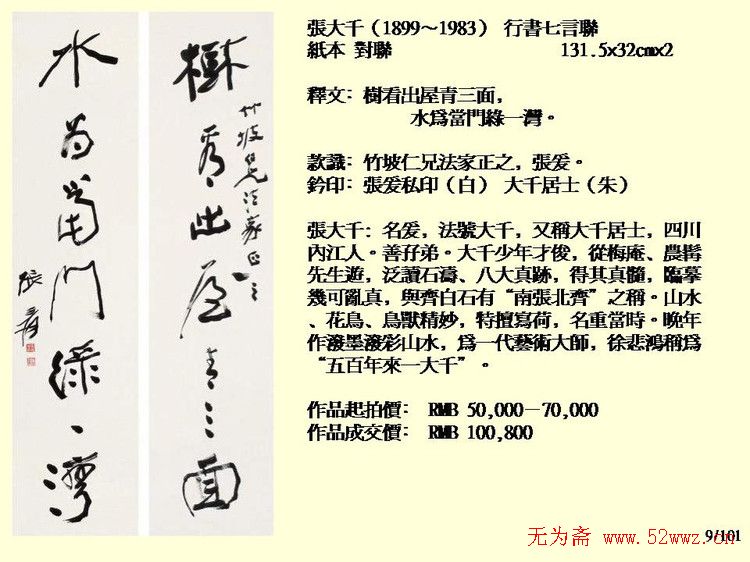 樹看出屋青三面
竹坡兄法家正之
水為當門綠一灣
張爰
張大千（1899～1983） 行書七言聯
紙本 對聯 131.5x32cmx2
釋文: 樹看出屋青三面，
水爲當門綠一灣。
款識: 竹坡仁兄法家正之，張爰。
鈐印: 張爰私印（白） 大千居士（朱）
張大千: 名爰，法號大千，又稱大千居士，四川
內江人。善孖弟。大千少年才俊，從梅庵、農髯
先生遊，泛讀石濤、八大真跡，得其真髓，臨摹
幾可亂真，與齊白石有“南張北齊”之稱。山水
、花鳥、鳥獸精妙，特擅寫荷，名重當時。晚年
作潑墨潑彩山水，爲一代藝術大師，徐悲鴻稱爲
“五百年來一大千”。
作品起拍價: RMB 50,000－70,000
作品成交價: RMB 100,800
9/101
无为斋 www.52wwz.cn